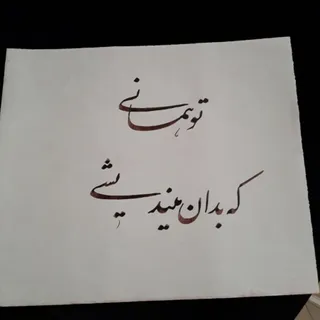 تو همانی
که بدان میندیشی